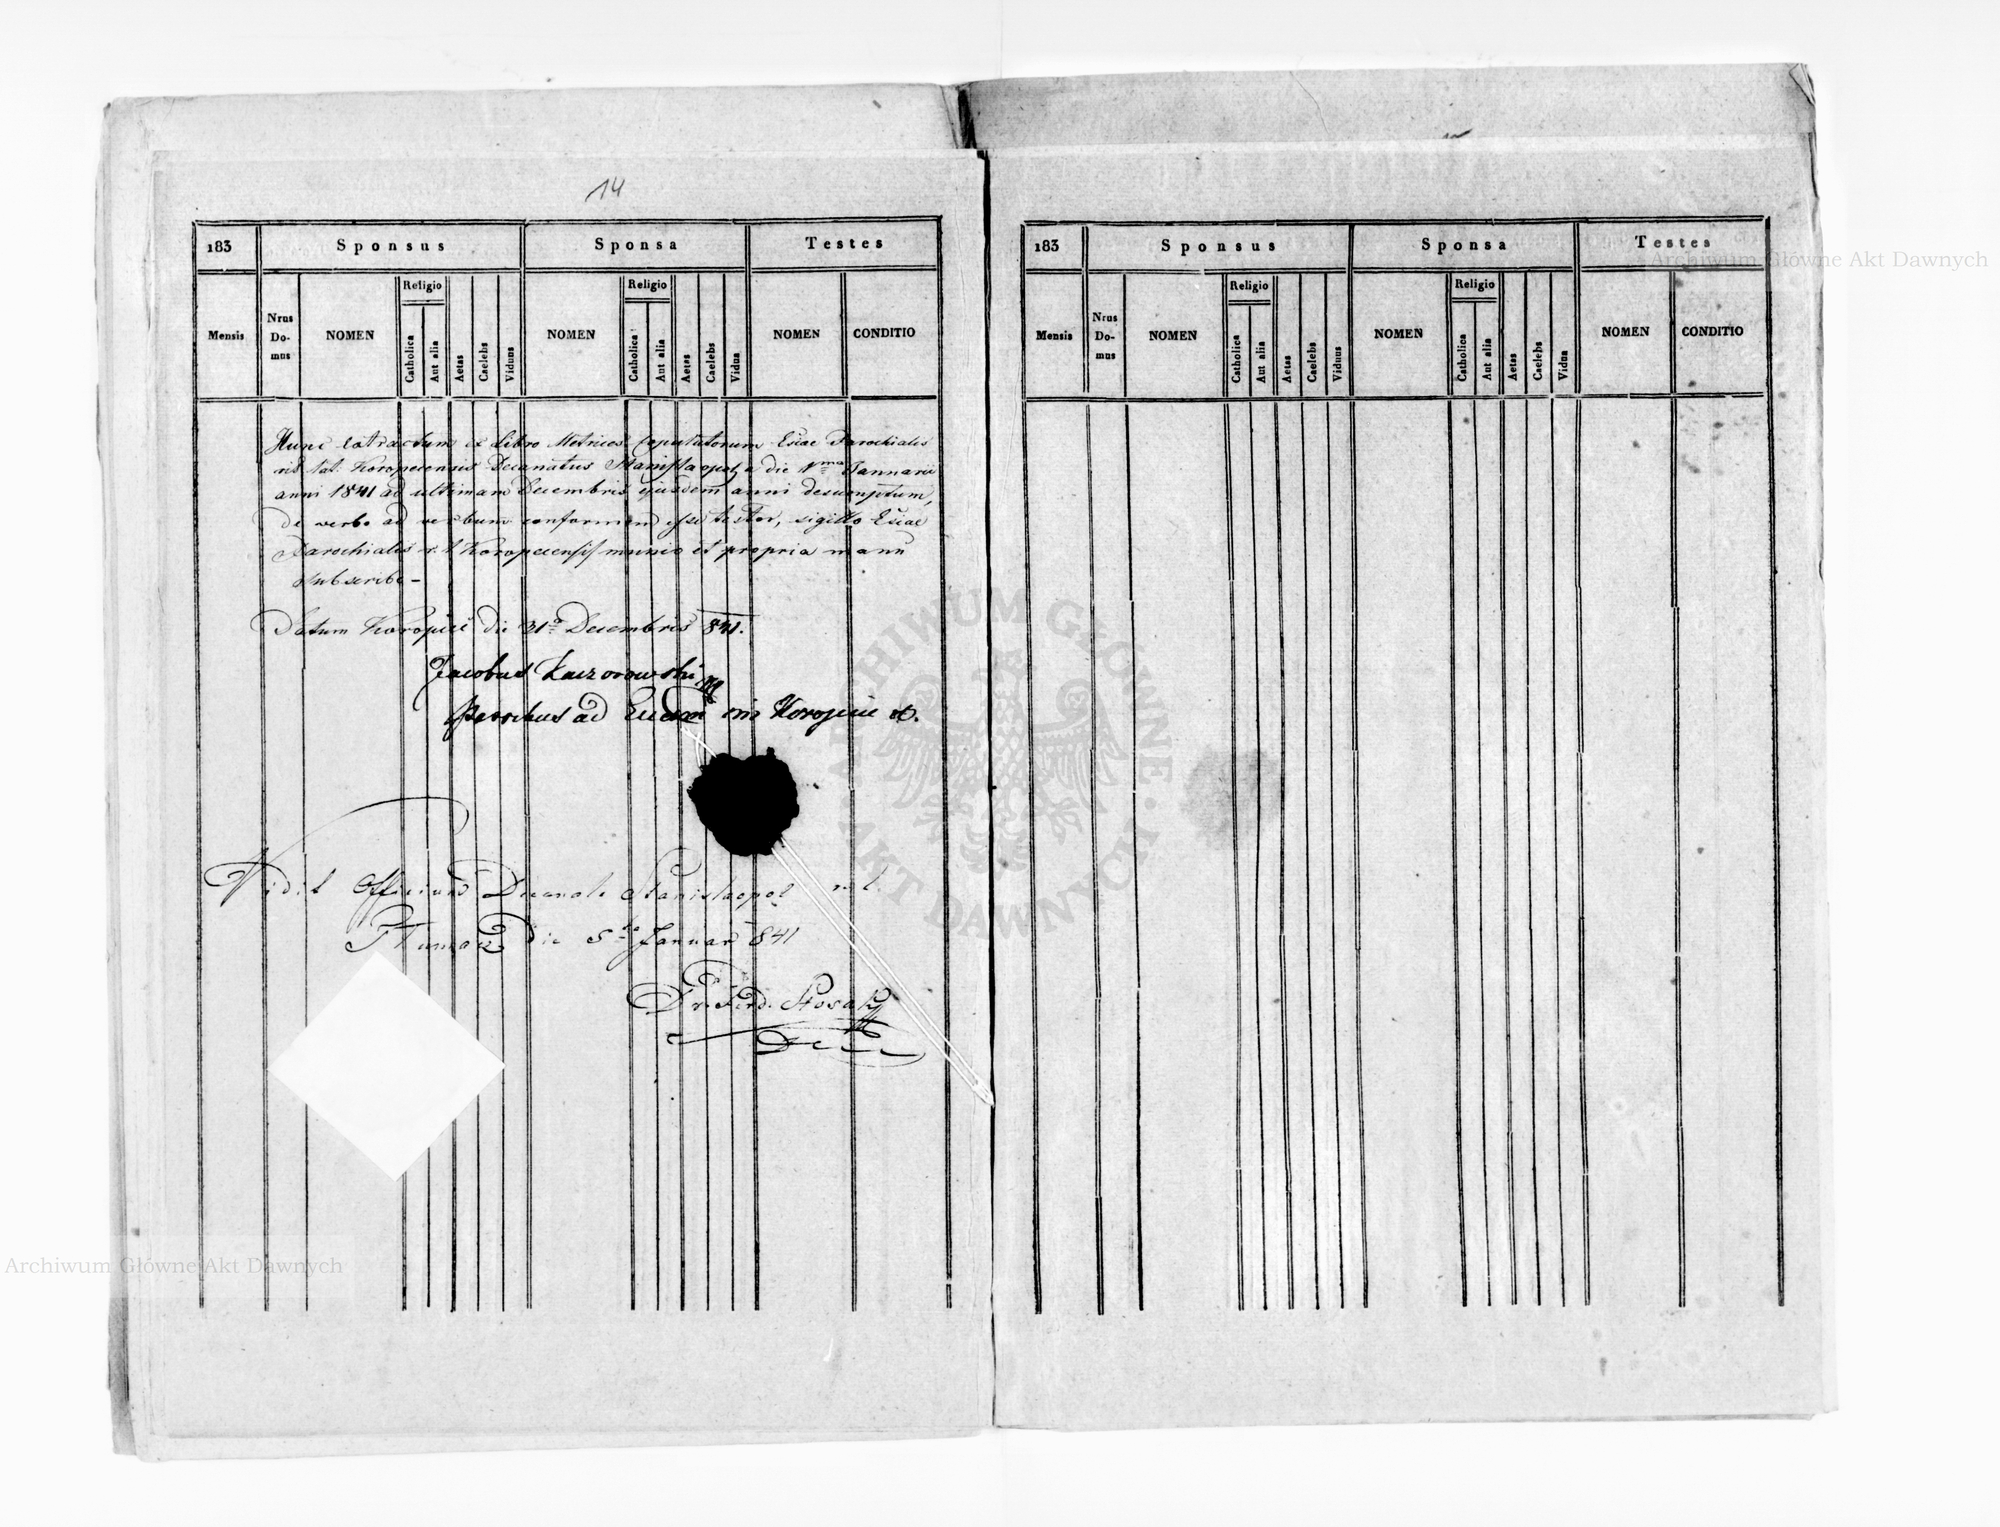 14
183 Sponsus Sponsa Testes
Mensis Nrus Do-mus NOMEN Religio Catholica Aut alia Aetas Caelebs Viduus NOMEN Religio Catholica Aut alia Aetas Caelebs Vidua NOMEN CONDITIO
Hunc extractum ex Libro Metrices Copulatorum Eccae Parochialis
rit. lat. Koropecensis Decanatus Stanislaopol. a die 1ma Januarii
anni 1841 ad ultimam Decembris ejusdem anni descumptum,
de verbo ad verbum conformem esse testor, sigillo Eccae
Parochialis r. l. Koropecensis munio et propria manu
subscribo -
Datum Koropiec die 31a Decembris 841.
Jacobus Kaczorowski
Parochus ad Eccam in Koropiec
Vidit Officium Decanale Stanislaopol r. l.
Tłumacz die 5ta Januar 841
Dec
183 Sponsus Sponsa Testes
Mensis Nrus Do-mus NOMEN Religio Catholica Aut alia Aetas Caelebs Viduus NOMEN Religio Catholica Aut alia Aetas Caelebs Vidua NOMEN CONDITIO
Archiwum Główne Akt Dawnych
ARCHIWUM GŁÓWNE · AKT DAWNYCH ·
Archiwum Główne Akt Dawnych